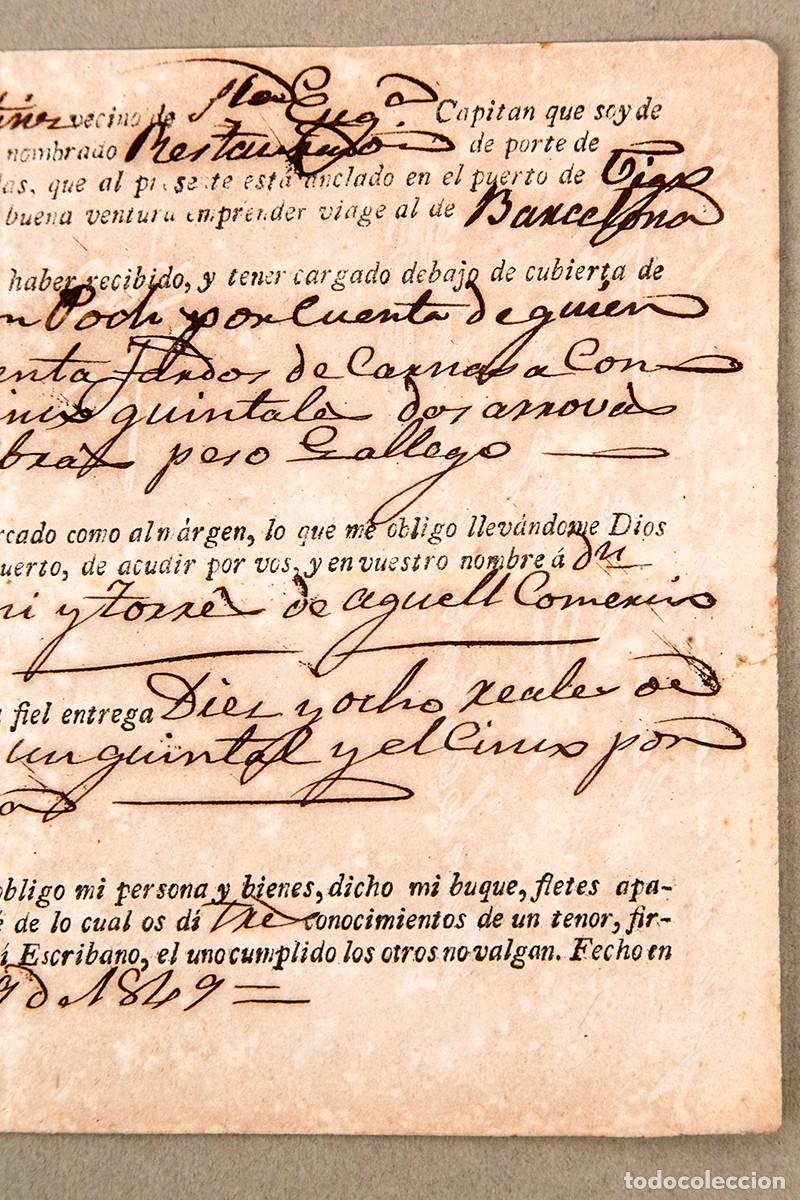 vecino de Sta Eug.ª Capitan que soy de
nombrado Restaurador de porte de
das, que al presente está anclado en el puerto de Vigo
buena ventura emprender viage al de Barcelona
haber recibido, y tener cargado debajo de cubierta de
n Poch y por Cuenta de quien
enta fardos de Carnasa Con
quintales dos arrovas
bras peso Gallego
rcado como al márgen, lo que me obligo llevándome Dios
uerto, de acudir por vos, y en vuestro nombre á dn
ni y Torres de aquell Comercio
fiel entrega Diez y ocho reales de
un quintal y el Cinco por
obligo mi persona y bienes, dicho mi buque, fletes apa-
é de lo cual os dí tres conocimientos de un tenor, fir-
í Escribano, el uno cumplido los otros no valgan. Fecho en
9 d 1849
todocoleccion